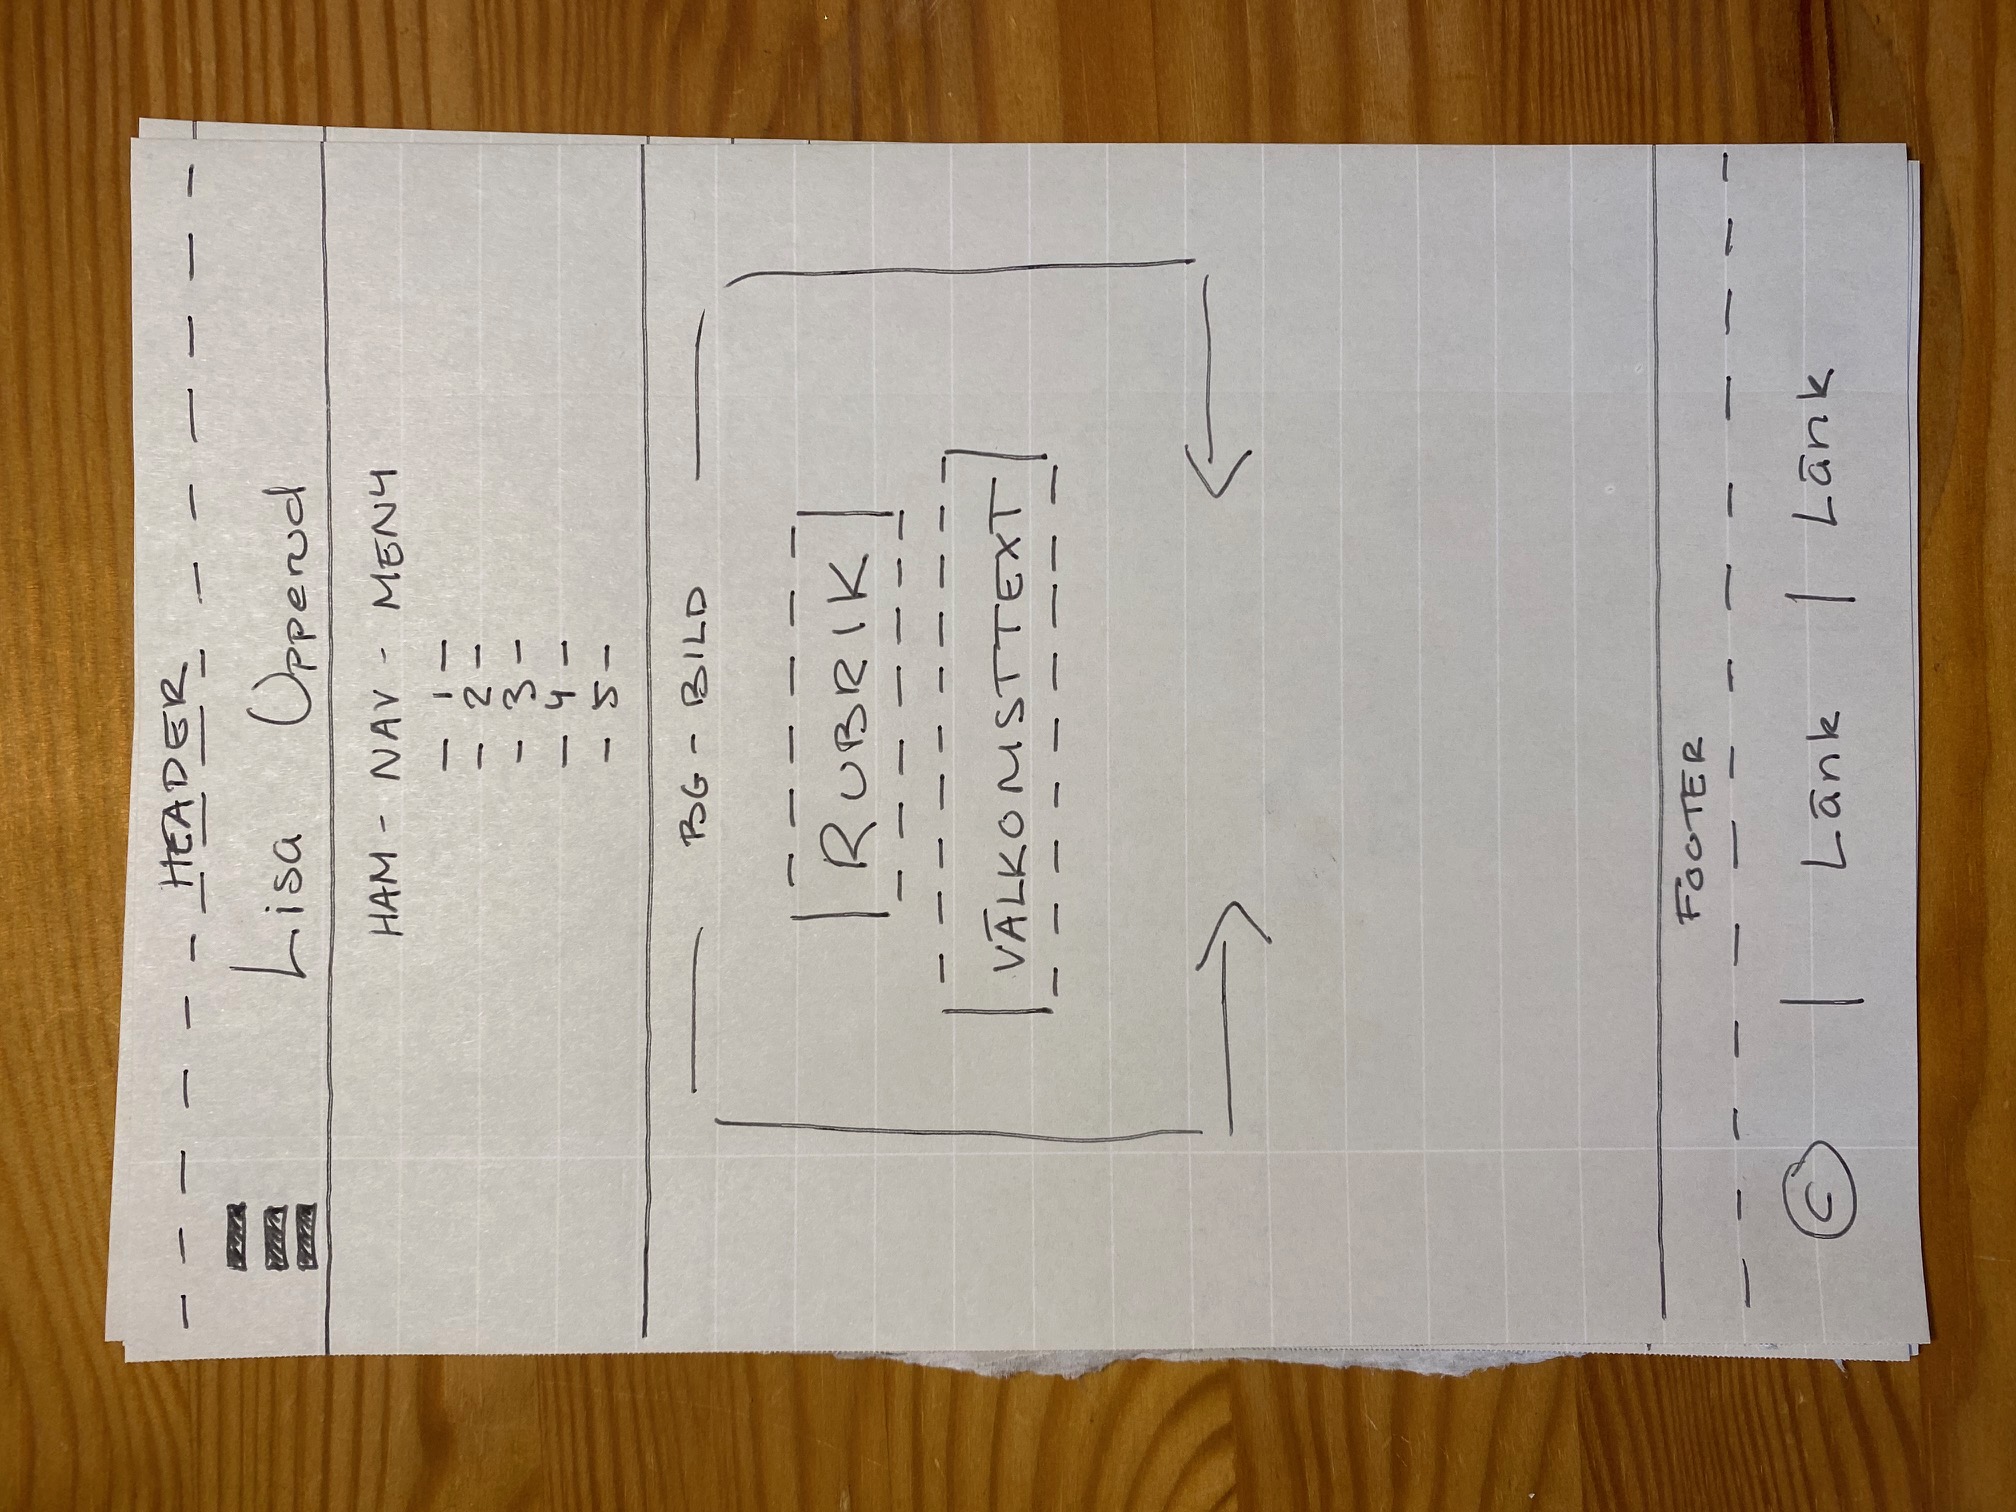 HEADER
Lisa Upperud
HAM - NAV - MENY
- 1 -
- 2 -
- 3 -
- 4 -
- 5 -
BG - BILD
RUBRIK
VÄLKOMSTTEXT
FOOTER
© | Länk | Länk